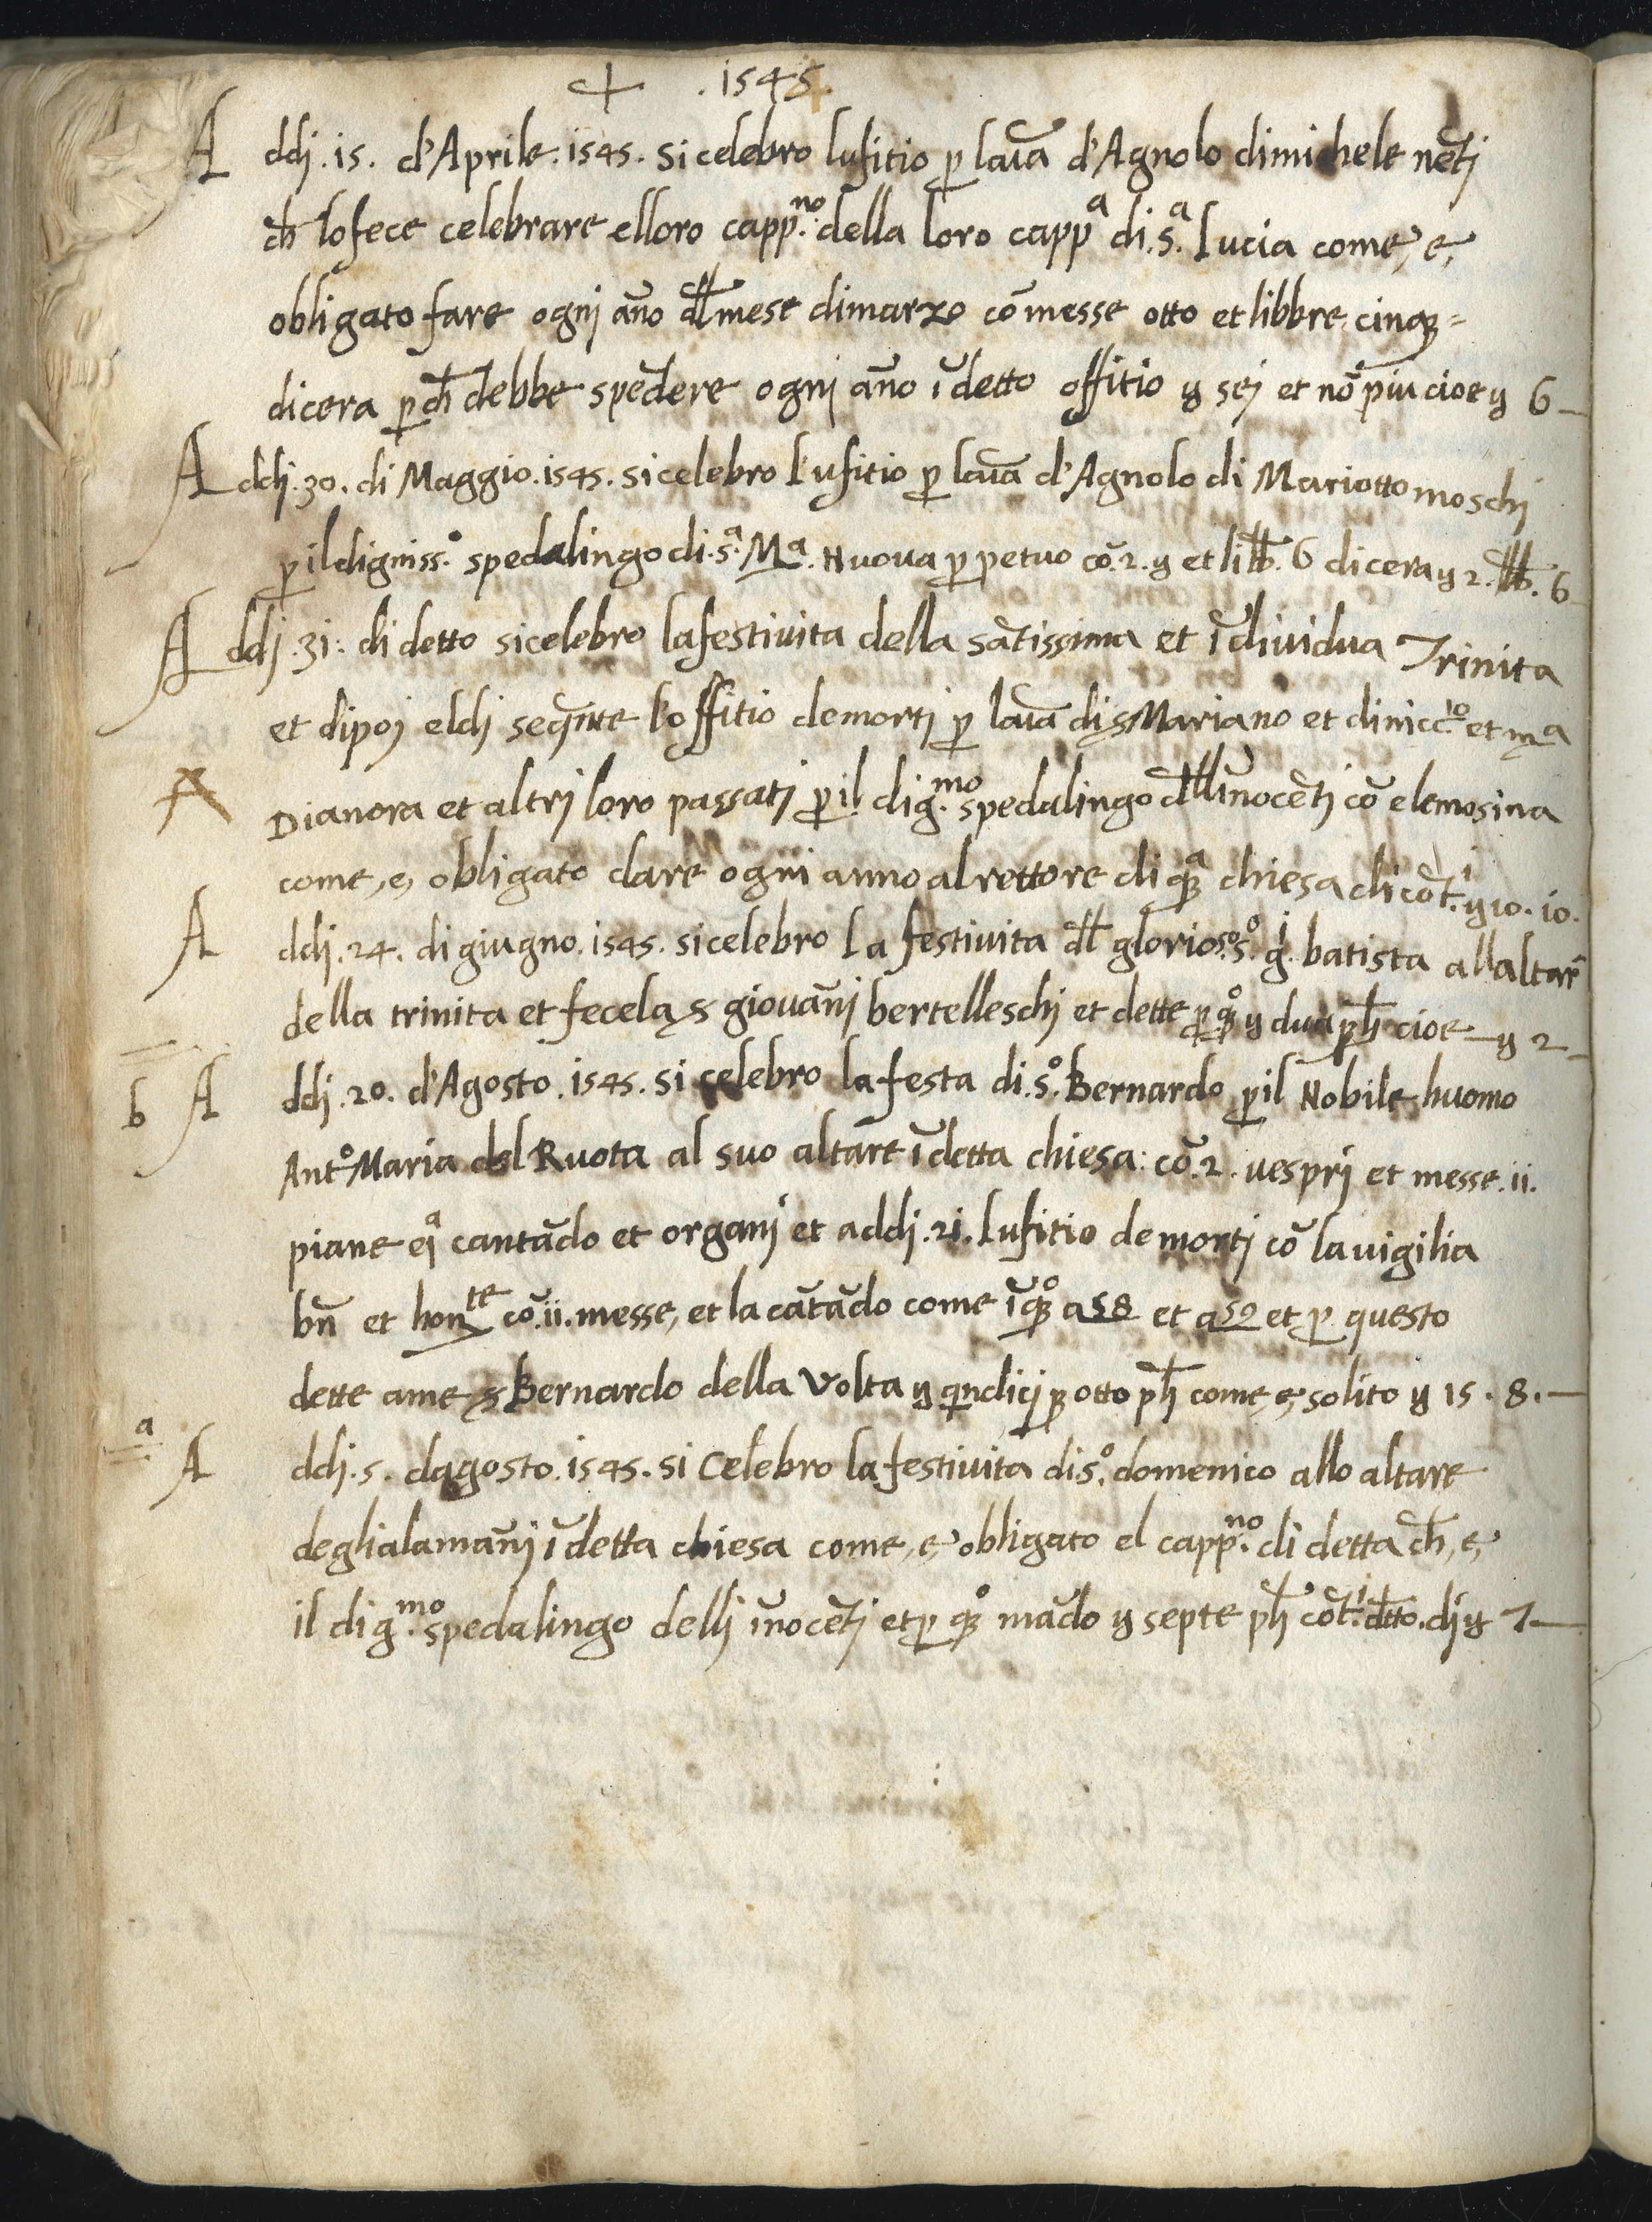 + .1545.
Addj .15. d'Aprile .1545. si celebro lufitio p laīa d'Agnolo dimichele nētj
ch lofece celebrare elloro capp.no della loro cappa di .s.a Lucia come, e,
obligato fare ognj āno dllmese dimarzo cō messe otto et libbre cinq=
dicera p ch debbe spēdere ognj āno ī detto offitio y sej et nō piu cioe y 6—
Addj .30. di Maggio .1545. si celebro l'ufitio p laīa d'Agnolo di Mariotto moschj
p il digniss.o spedalingo di .s.a Ma. Nuova p petuo cō .2. y et libb. 6 dicera y 2. lbb. 6
Addj .31. di detto si celebro lafestivita della sātissima et īdividua Trinita
et dipoj eldj seqnte l'offitio demortj p laīa di s Mariano et dinicc.lo et ma
Dianora et altrj loro passatj p il dig.mo spedalingo dll īnocētj cō elemosina
come, e, obligato dare ogni anno al rettore di qa chiesa di cōt.j y 10. 10.
Addj .24. di giugno .1545. si celebro la festivita dl glorioso .s.o g.i batista allaltare
della trinita et fecela s giovānj bertelleschj et dette p qo y dua ph cioe — y 2—
b Addj .20. d'Agosto .1545. si celebro la festa di .s.o Bernardo p il Nobile huomo
Ant.o Maria del Ruota al suo altare ī detta chiesa: cō .2. vesprj et messe .ii.
piane e ja cantādo et organj et addj .21. lufitio demortj cō la vigilia
bñ et honte cō .ii. messe, et la cātādo come ī qo a 58 et a 59 et p questo
dette a me s Bernardo della Volta y qndicj p otto ph come, e, solito y 15. 8.—
a Addj .5. dagosto .1545. si Celebro la festivita di .s.o domenico allo altare
deglialamānj ī detta chiesa come, e, obligato el capp.no di detta ch, e,
il dig.mo spedalingo dellj īnocētj et p qo mādo y septe ph cōt.j dtto. dj y 7—